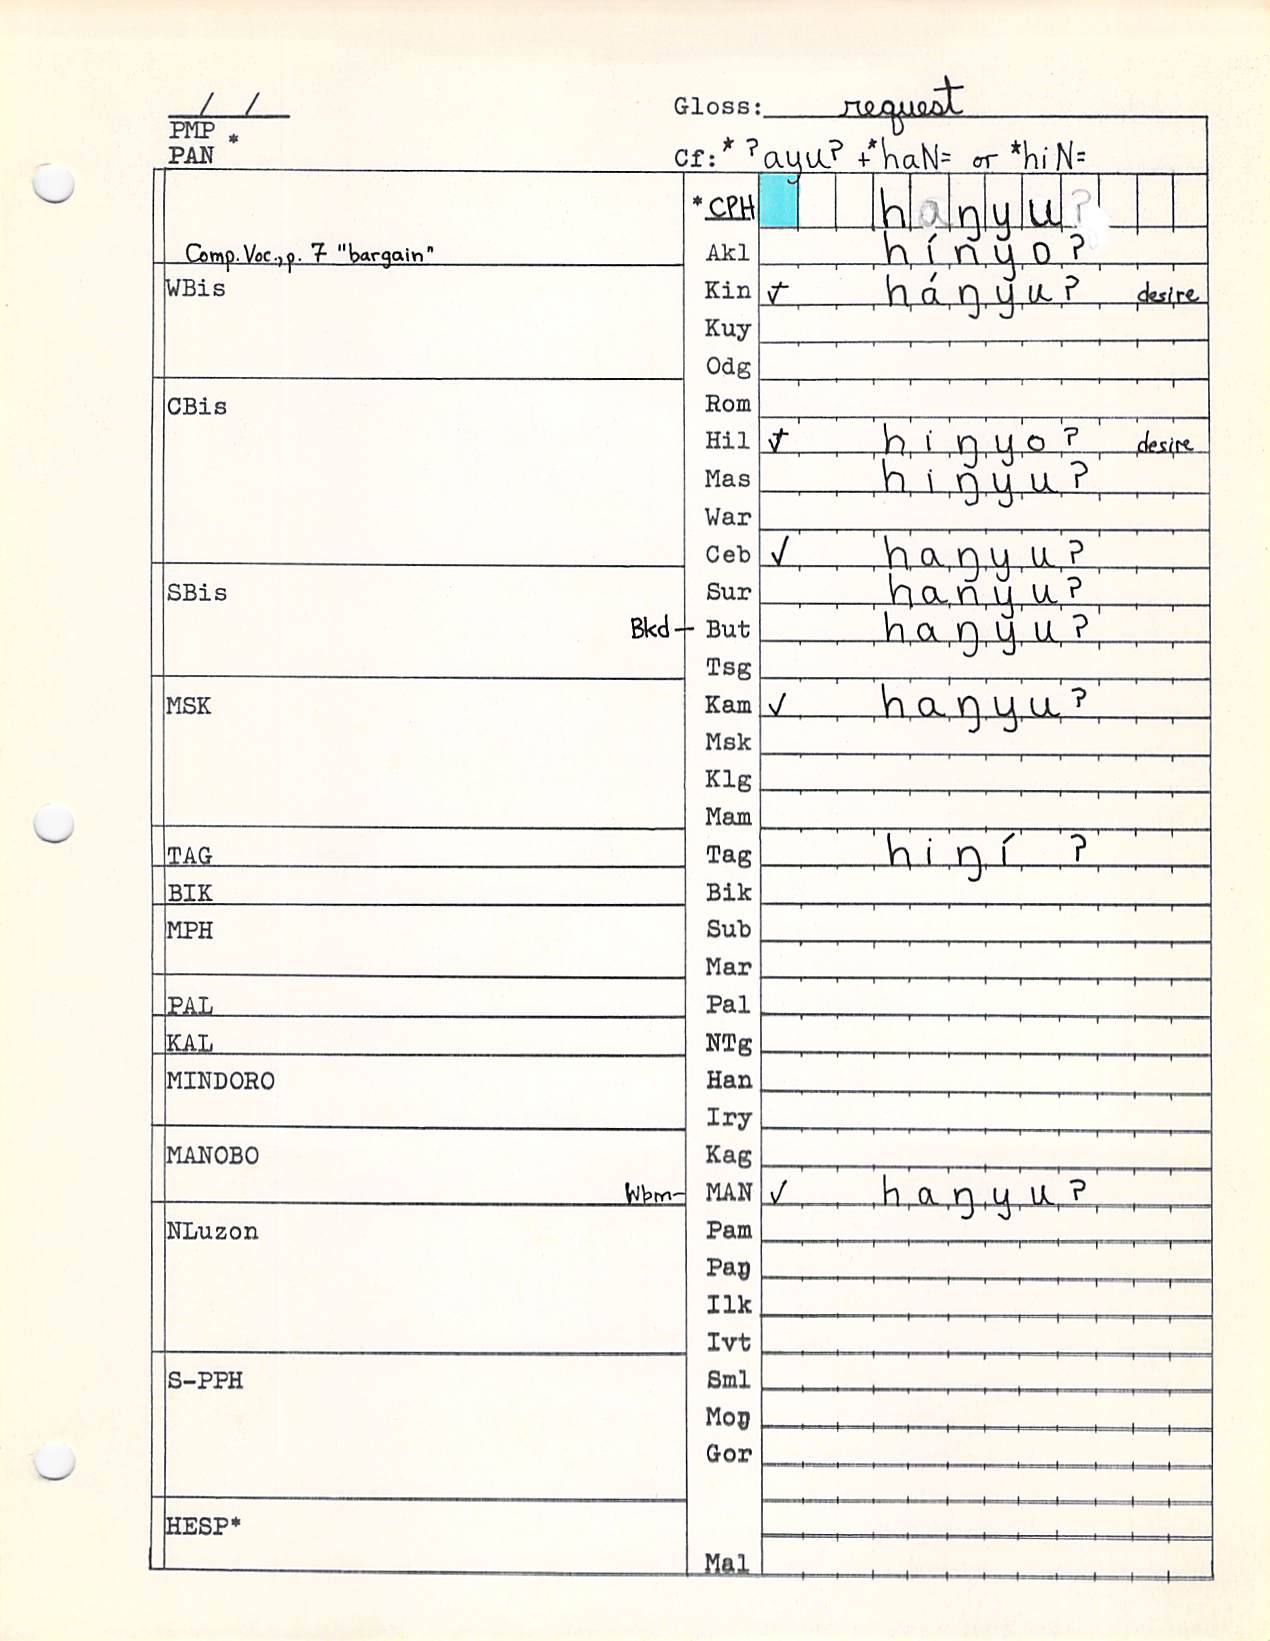 / / Gloss: request
PMP *
PAN Cf: * ?ayu? + *haN= or *hiN=
*CPH haŋyu?
Comp. Voc., p. 7 "bargain" Akl híŋyo?
WBis Kin ✓ háŋyu? desire
Kuy
Odg
CBis Rom
Hil ✓ hiŋyo? desire
Mas hiŋyu?
War
Ceb ✓ haŋyu?
SBis Sur haŋyu?
Bkd – But haŋyu?
Tsg
MSK Kam ✓ haŋyu?
Msk
Klg
Mam
TAG Tag hiŋí ?
BIK Bik
MPH Sub
Mar
PAL Pal
KAL NTg
MINDORO Han
Iry
MANOBO Kag
Wbm– MAN ✓ haŋyu?
NLuzon Pam
Paŋ
Ilk
Ivt
S-PPH Sml
Moŋ
Gor
HESP*
Mal